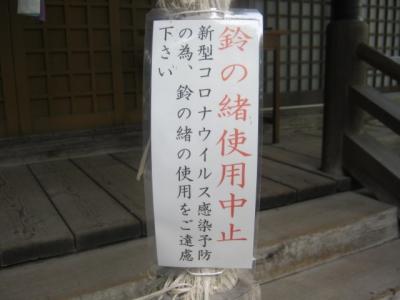 鈴の緒使用中止
新型コロナウイルス感染予防
の為、鈴の緒の使用をご遠慮
下さい